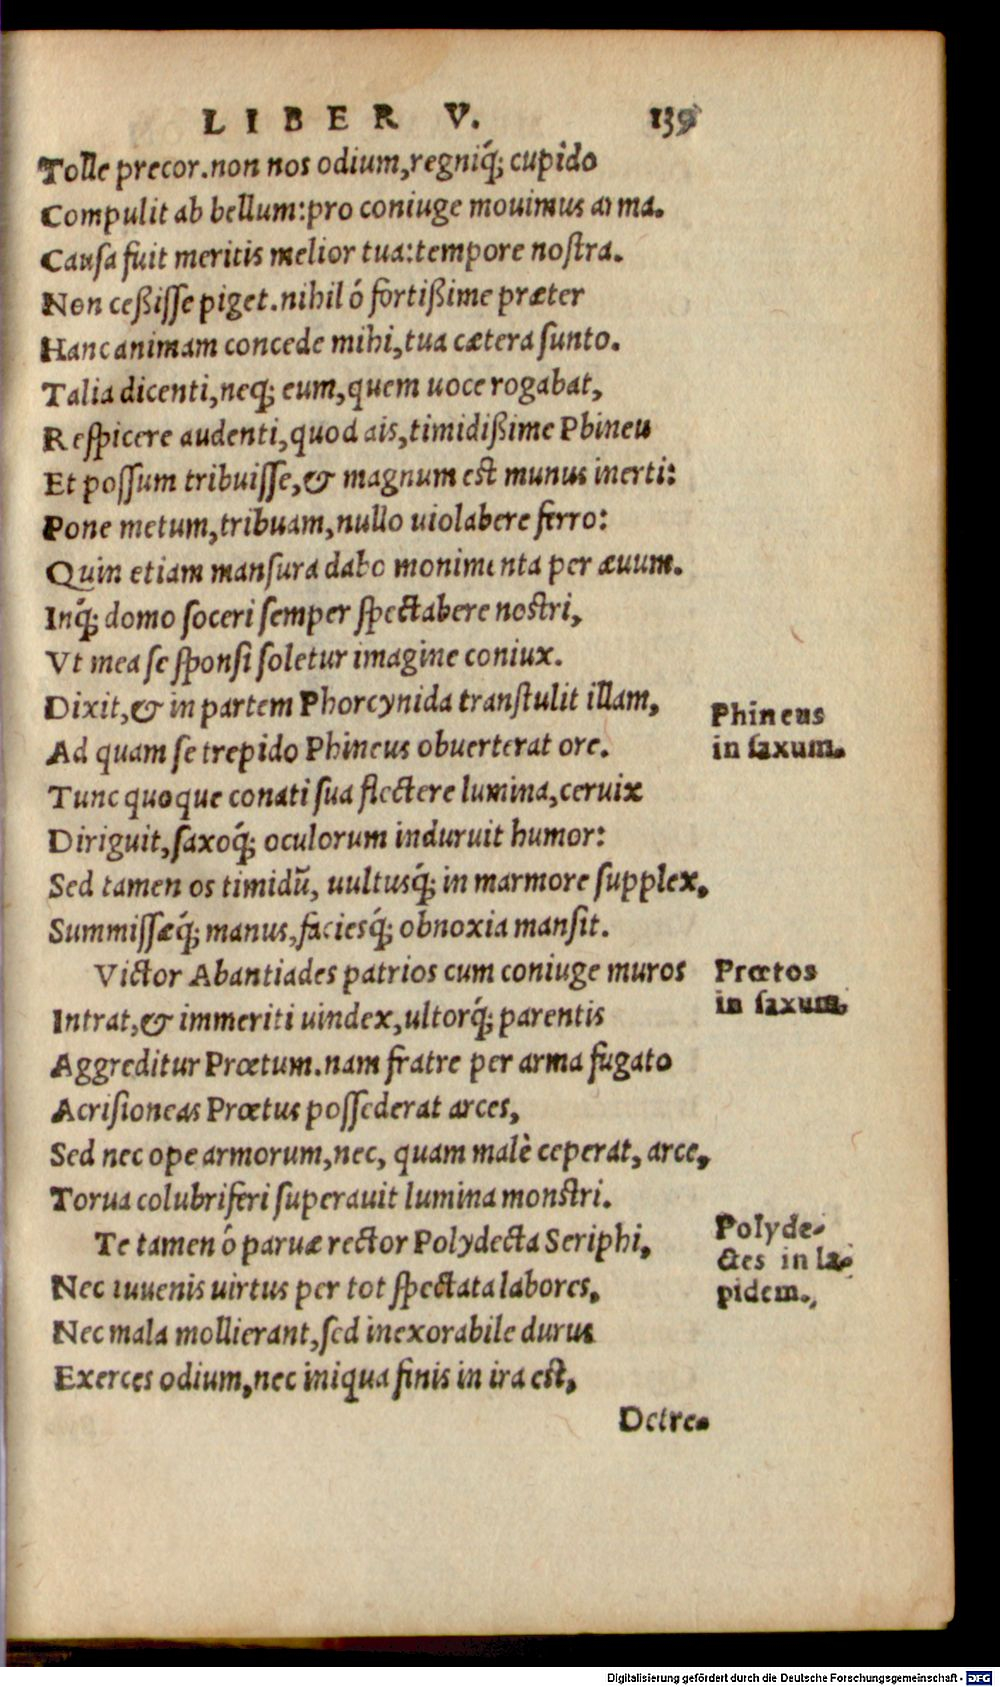 LIBER V. 139
Tolle precor. non nos odium, regniq́; cupido
Compulit ab bellum: pro coniuge mouimus arma.
Causa fuit meritis melior tua: tempore nostra.
Non ceßisse piget. nihil ó fortißime præter
Hanc animam concede mihi, tua cætera sunto.
Talia dicenti, neq; eum, quem uoce rogabat,
Respicere audenti, quod ais, timidißime Phineu
Et possum tribuisse, & magnum est munus inerti:
Pone metum, tribuam, nullo uiolabere ferro:
Quin etiam mansura dabo monimenta per æuum.
Inq́; domo soceri semper spectabere nostri,
Vt mea se sponsi soletur imagine coniux.
Dixit, & in partem Phorcynida transtulit illam,
Ad quam se trepido Phineus obuerterat ore.
Phineus
in saxum.
Tunc quoque conati sua flectere lumina, ceruix
Diriguit, saxoq́; oculorum induruit humor:
Sed tamen os timidū, uultusq́; in marmore supplex,
Summissæq́; manus, faciesq́; obnoxia mansit.
Victor Abantiades patrios cum coniuge muros
Intrat, & immeriti uindex, ultorq́; parentis
Prœtos
in saxum.
Aggreditur Prœtum. nam fratre per arma fugato
Acrisioneas Prœtus possederat arces,
Sed nec ope armorum, nec, quam malè ceperat, arce,
Torua colubriferi superauit lumina monstri.
Te tamen ó paruæ rector Polydecta Seriphi,
Nec iuuenis uirtus per tot spectata labores,
Polyde-
ctes in la-
pidem.
Nec mala mollierant, sed inexorabile durus
Exerces odium, nec iniqua finis in ira est,
Detre-
Digitalisierung gefördert durch die Deutsche Forschungsgemeinschaft - DFG